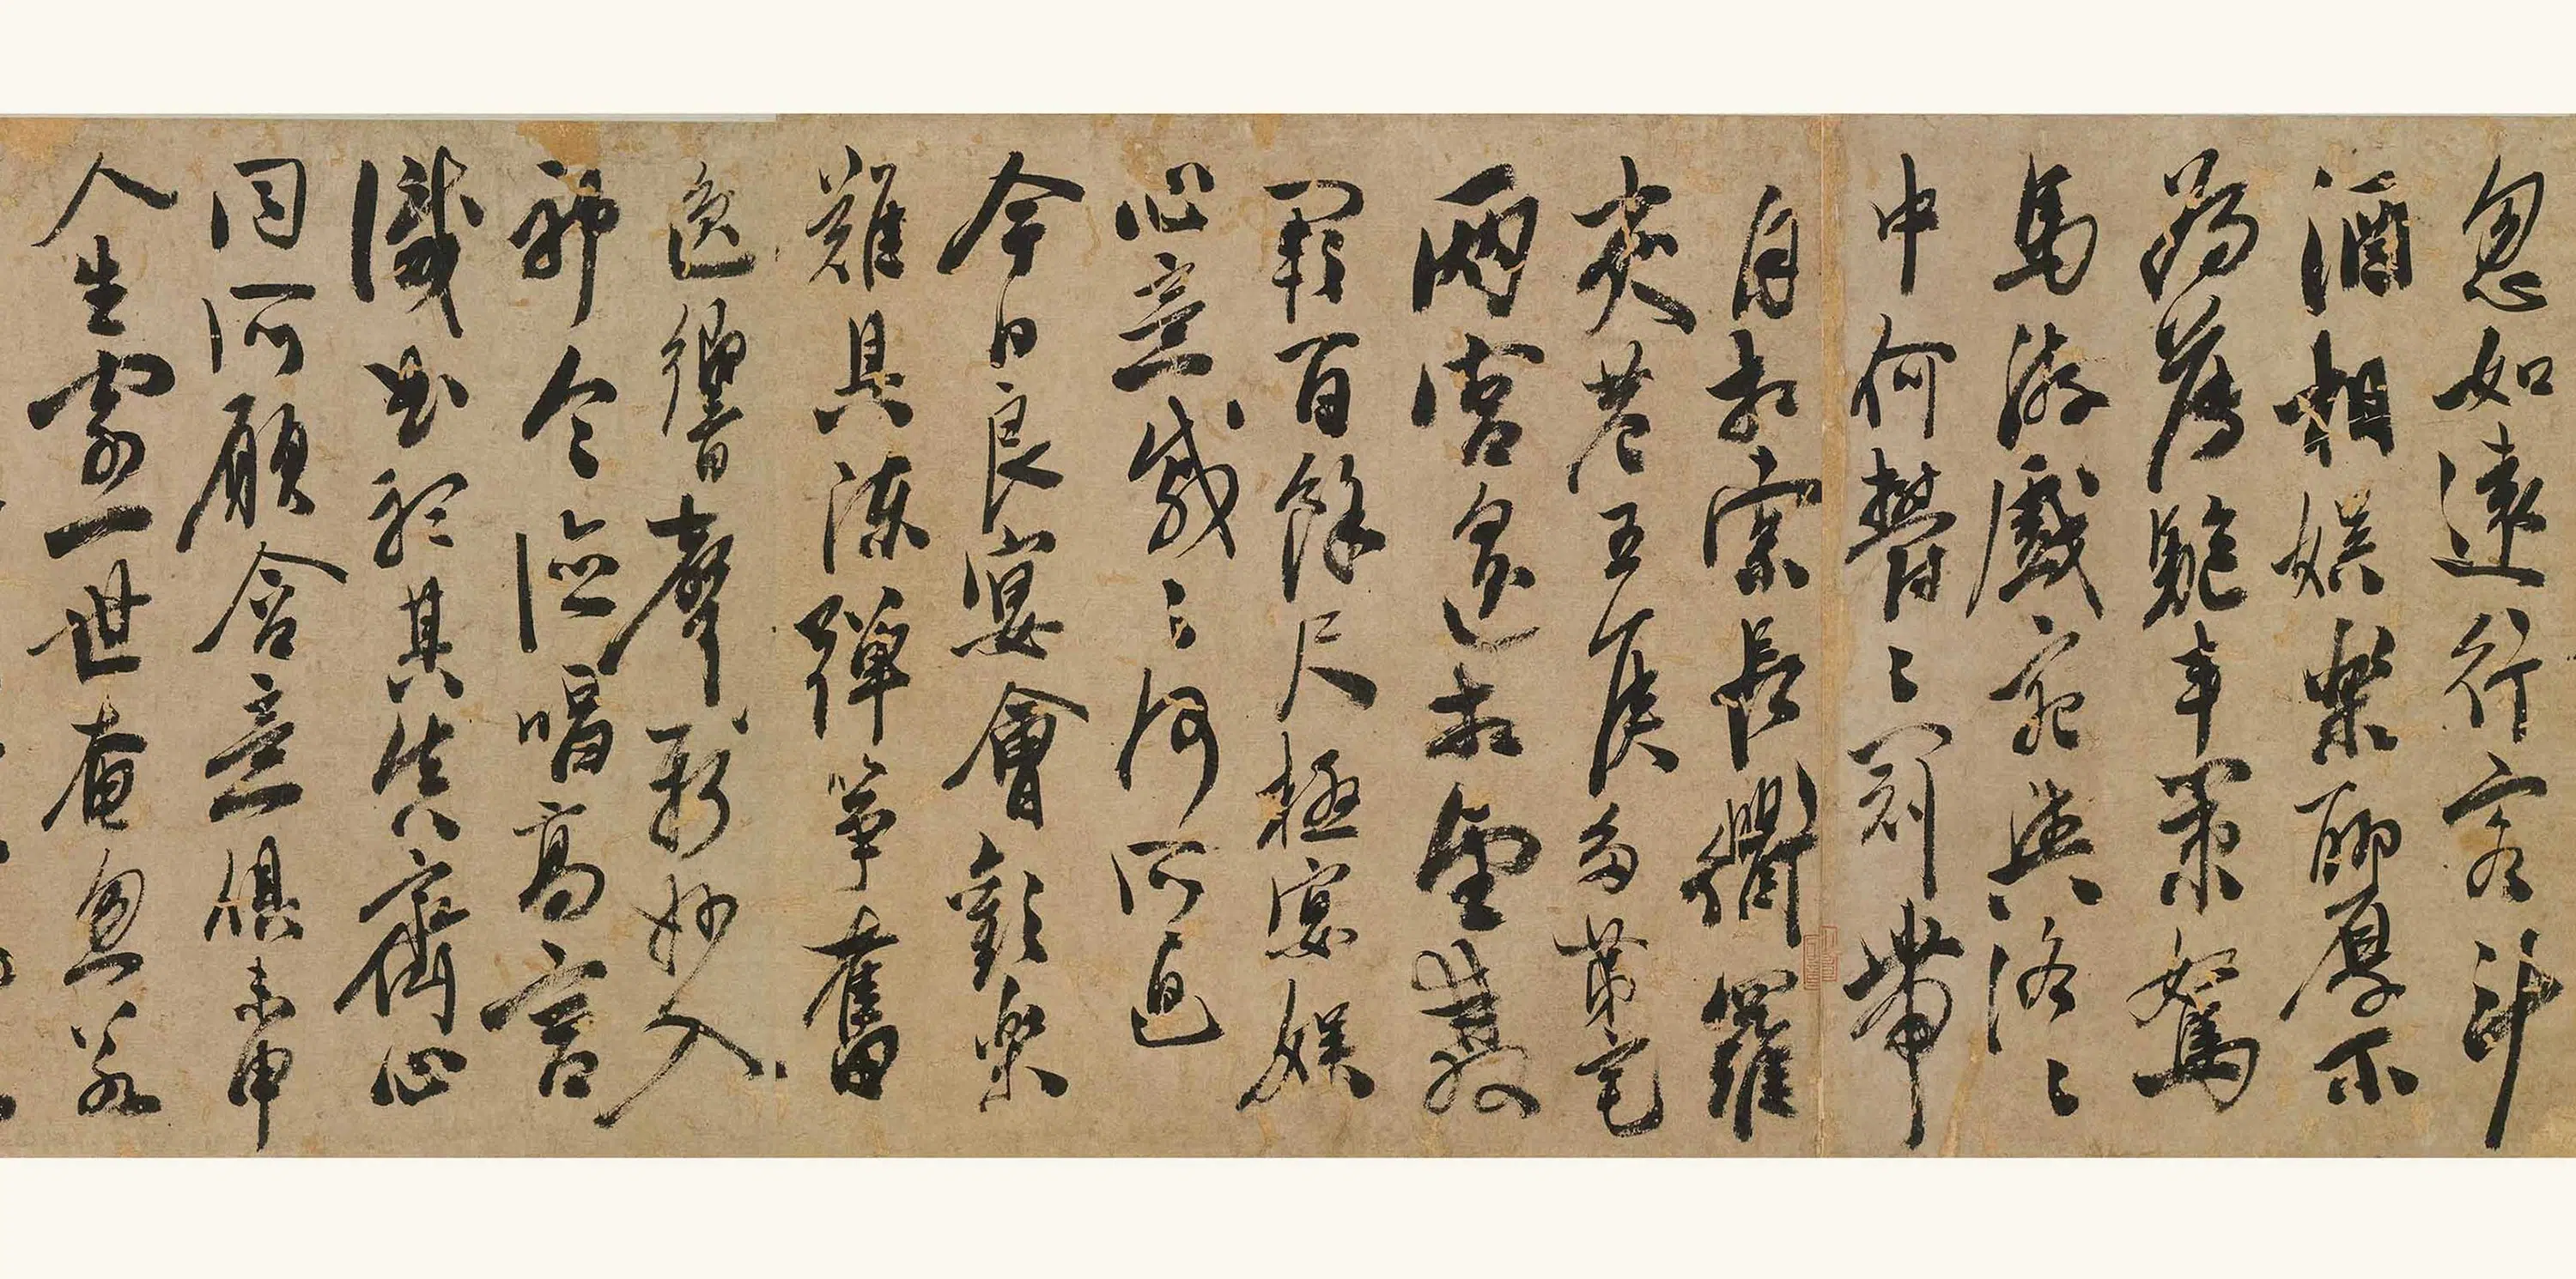 忽如遠行客斗
酒相娛樂聊厚不
為薄驅車策駑
馬游戲宛與洛〻
中何鬱〻冠帶
自相索長衢羅
夾巷王侯多第宅
兩宮遙相望雙
闕百餘尺極宴娛
心意戚〻何所迫
今日良宴會歡樂
難具陳彈箏奮
逸響聲新妙入
神令德唱高言
識曲聽其真齊心
同所願含意俱未申
人生寄一世奄忽若